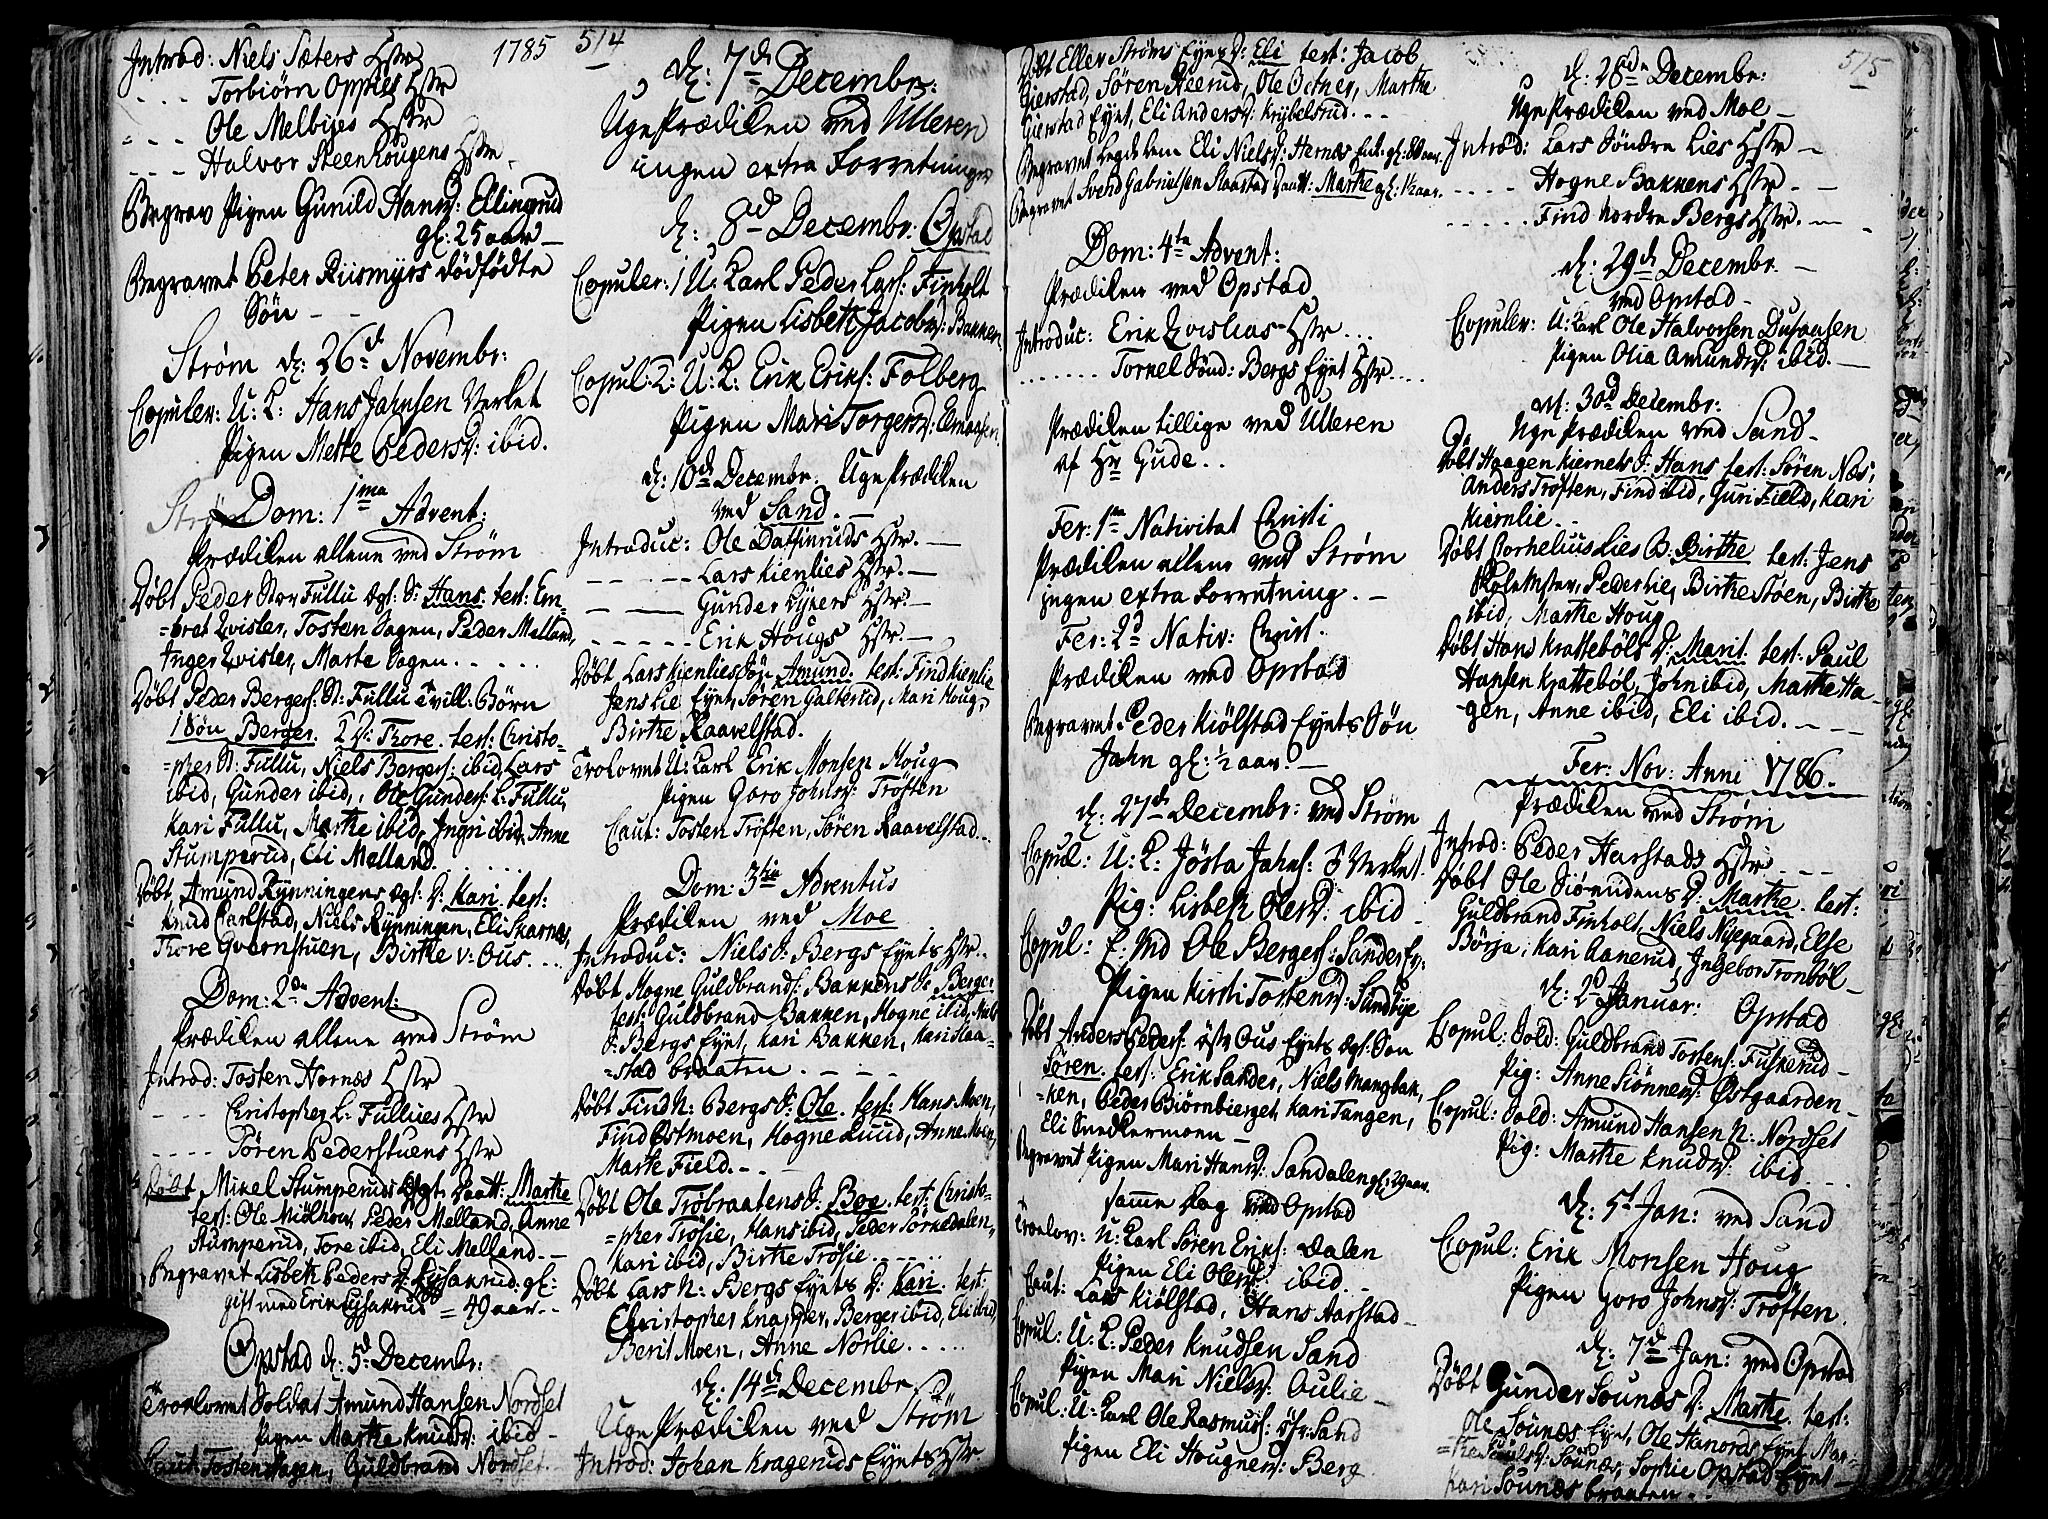 1785 514
Introd: Niels Sæters Hstr
- - - Torbiörn Oppies Hstr
- - - Ole Melbyes Hstr
- - - Halvor Steenhougens Hstr.
Begrav Pigen Gunild Hansd: Ellingrud
gl: 25 aar
Begravet Peter Riismyrs dödfödte
Sön
Ström d: 26d Novembr:
Copuler: U: K: Hans Jahnsen Verket
Pigen Mette Pedersd: ibid.
Dom: 1ma Advent:
Prædiken allene ved Ström
Döbt Peder Stor Fullu ægt: S: Hans. test: Em-
=bret Qvisler, Tosten Sagen, Peder Melland,
Inger Qvisler, Marte Sagen. - - - -
Döbt Peder Bergers: St: Fullu Tvill: Börn
1 Sön Berger. 2 D: Thore. test: Christo-
=pher St: Fullu, Niels Bergers: ibid, Lars
ibid, Gunder ibid, Ole Gunders: L: Fullu,
Kari Fullu, Marthe ibid, Ingri ibid, Anne
Stumperud, Eli Melland.
Döbt Amund Rynningens ægt: D: Kari. test:
Knud Carlstad, Niels Rynningen, Eli Skarnæs,
Thore Gvernstuen, Birthe v: Ous. - - -
Dom: 2da Advent:
Prædiken allene ved Ström
Introd: Tosten Hornæs Hstr
- - - Christopher L: Fullues Hstr
- - - Sören Pederstuens Hstr
Döbt Mikel Stumperuds ægt. Daatt: Marthe
test: Ole Miölhou, Peder Melland, Anne
Stumperud, Tore ibid, Eli Melland.
Begravet Lisbeth Pedersd: Lysakrud gl:
gift med Erik Lysakrud = 49 aar.
Opstad d: 5d Decembr:
Trolovet Soldat Amund Hansen Nordset
Pigen Marthe Knudsd: ibid
Caut: Tosten Hagen, Guldbrand Nordset.
d: 7de Decembr:
Uge Prædiken ved Ulleren
ingen extra Forretninger
d: 8d Decembr: Opstad
Copuler: 1 U: Karl Peder Lars: Finholt
Pigen Lisbeth Jacobsd: Bakken
Copul: 2: U: K: Erik Eriks: Folberg
Pigen Mari Torgersd: Elmaasen
d: 10de Decembr: Uge Prædiken
ved Sand.
Introduc: Ole Daffinruds Hstr.
- - - Lars Kienlies Hstr.
- - - Gunder Hstr.
- - - Erik Hougs Hstr.
Döbt Lars Kienlies Sön Amund. test: Find Kienlie
Jens Lie Eyet, Sören Galterud, Mari Houg,
Birthe Raavelstad.
Trolovet U: Karl Erik Monsen Houg
Pigen Goro Johnsd: Tröften
Caut: Tosten Tröften, Sören Raavelstad.
Dom: 3tia Adventus
Prædiken ved Moe
Introduc: Niels S: Bergs Eyets Hstr.
Döbt Hogne Guldbrands: Bakkens S: Berger
test: Guldbrand Bakken, Hogne ibid, Niels
S: Bergs Eyet, Kari Bakken, Kari Slaa-
=stad braaten. - - -
Döbt Find N: Bergs S: Ole. test: Hans Moen,
Find Ostmoen, Hogne Ruud, Anne Moen,
Marthe Field. - -
Döbt Ole Tröbraatens S: Boe. test: Christo-
=pher Trösie, Hans ibid, Peder Törnedalen,
Kari ibid, Birthe Trösie. - - -
Döbt Lars N: Bergs Eyets D: Kari. test:
Christopher Knapper, Berger ibid, Eli ibid,
Berit Moen, Anne Norlie. - - -
d: 14de Decembr
Uge Prædiken ved Ström
Introd: Johan Krageruds Eyets Hstr
515
Döbt Eller Ströms Eyet D: Eli test: Jacob
Gierstad, Sören Heerud, Ole Bether, Marthe
Gierstad Eyet, Eli Andersd: Krybelsrud. - -
Begravet Legdslem Eli Nielsd: Hernæs Enk: gl: 80 aar.
Begravet Svend Gabrielsen Slaastad Daatt: Marthe gl: 1/2 aar.
Dom: 4ta Advent:
Prædiken ved Opstad
Introduc: Erik Qvislias Hstr. - -
- - - Torkel Sönd: Bergs Eyet Hstr. - -
Prædiken tillige ved Ulleren
af Hr Gude.
Fer: 1ma Nativitat Christi
Prædiken allene ved Ström
ingen extra Forretning.
Fer: 2d Nativ: Christ.
Prædiken ved Opstad
Begravet Peder Kiölstad Eyets Sön
Jahn gl: 1/2 aar.
d: 27de Decembr: ved Ström
Copul: U: K: Jösta Jahns: S Verket.
Pig: Lisbeth Olesd: ibid
Copul: E: Md Ole Bergers: Sander Ey:
Pigen Kirsti Tostensd: Sundbye
Döbt Anders Peders: östr Ous Eyets ægt: Sön
Sören. test: Erik Sander, Niels Mangbak,
=ken, Peder Biörnbierget, Kari Tangen,
Eli Snedkermoen
Begravet Pigen Mari Hansd: Sandalen gl: 29 aar.
samme Dag ved Opstad
Trolov: U: Karl Sören Eriks: Dalen
Pigen Eli Olesd: ibid. -
Caut: Lars Kiölstad, Hans Aarstad
Copul: U: K: Peder Knudsen Sand
Pigen Mari Nielsd: Aulie
Copul: U: Karl Ole Rasmus: öfr: Sand
Pigen Eli Hougnesd: Berg
d: 28de Decembr:
Uge Prædiken ved Moe
Introd: Lars Söndre Lies Hstr
- - - Hogne Bakkens Hstr.
- - - Find Nordre Bergs Hstr.
d: 29de Decembr.
ved Opstad
Copuler: U: Karl Ole Halvorsen Dusaasen
Pigen Olia Amundsd: ibid.
d: 30d Decembr:
Uge Prædiken ved Sand
Döbt Haagen Kiernets S: Hans test: Sören Næs,
Anders Tröften, Find ibid, Guri Field, Kari
Kiernlie.
Döbt Cornelius Lies D: Birthe test: Jens
Skolemster, Peder Lie, Birthe Stöen, Birthe
ibid, Marthe Houg
Döbt Hans Krattebøls D: Marit. test: Paul
Hansen Kratteböl, John ibid, Marthe Ha-
gen, Anne ibid, Eli ibid. - -
Fer: Nov: Anni 1786.
Prædiken ved Ström
Introd: Peder Harstads Hstr - - -
Döbt Ole Siönudens D: Marthe. test:
Guldbrand Finholt, Niels Nyegaard, Else
Börja, Kari Aanerud, Ingebor Tronböl
d: 2d Januar: Opstad
Copul: Sold: Guldbrand Tostens: Fuskerud
Pig: Anne Siönnesd: Østgaarden
Copul: Sold: Amund Hansen N: Nordset
Pig: Marthe Knudsd: ibid. - -
d: 5t Jan: ved Sand
Copul: Erik Monsen Houg
Pigen Goro Johnsd: Tröften.
d: 7de Jan: ved Opstad
Döbt Gunder Sounæs D: Marthe. test:
Ole Sounæs Eyet, Ole Hanords Eyet, Mar-
=the Sounæs, Sophie Opstad Eyet
Kari Sounæs braaten. -